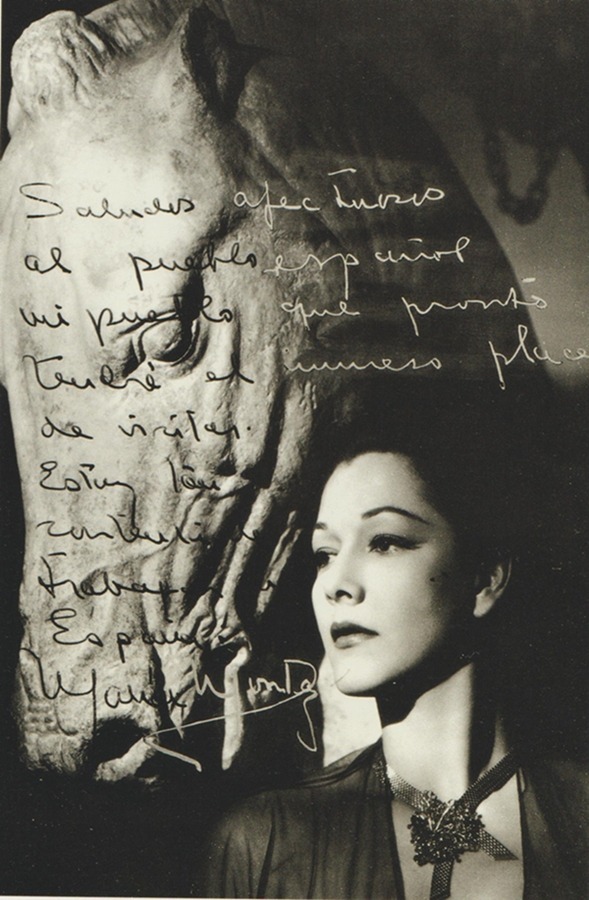 Saludos afectuosos
al pueblo español
mi pueblo que pronto
tendré el inmenso place
de visitar.
Estoy tan
contenta de
España
Maria Montez